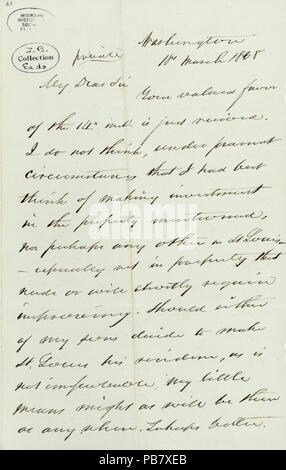 MISSOURI
HISTORICAL
SOC
J. B.
Collection
Eads
private
Washington
18 March 1868
My Dear Sir
Your valued favor
of the 14th inst. is just received.
I do not think, under present
circumstances that I had best
think of making investment
in the property mentioned,
nor perhaps any other in St. Louis
- especially not in property that
needs or will shortly require
improving. Should either
of my sons decide to make
St. Louis his residence, as is
not improbable, my little
means might as well be there
as any where. Perhaps better.
alamy
Image ID: PB7XEB
www.alamy.com